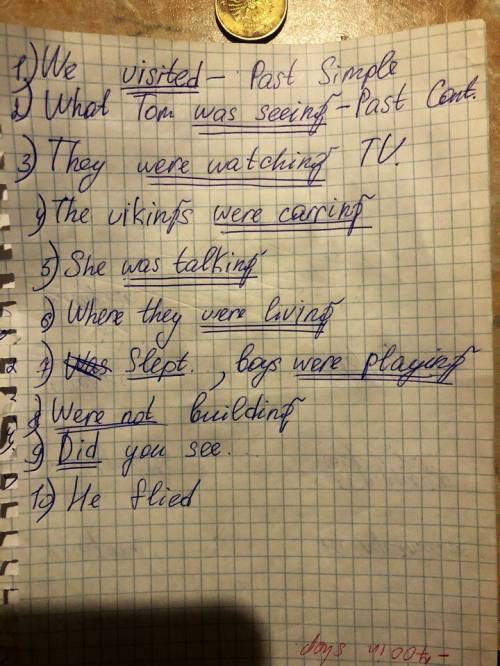 1) We visited - Past Simple
2) What Tom was seeing - Past Cont.
3) They were watching TV.
4) The vikings were carring
5) She was talking
6) Where they were living
7) Slept.., boys were playing
8) Were not building
9) Did you see...
10) He flied